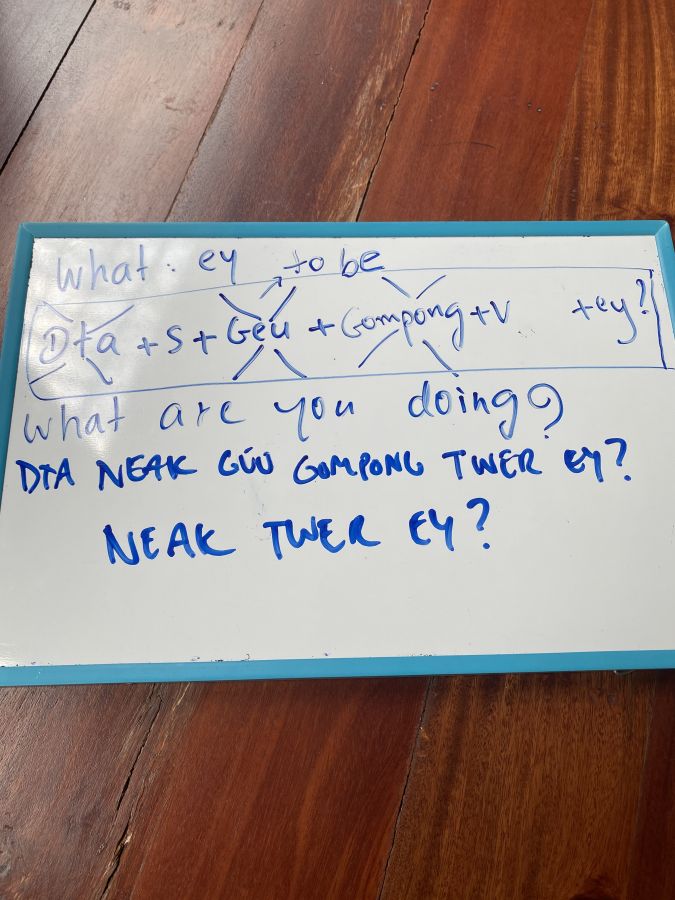 What : ey to be
Dta + S + Geu + Gompong + V + ey?
What are you doing?
DTA NEAK GÚU GOMPONG TWER EY?
NEAK TWER EY?